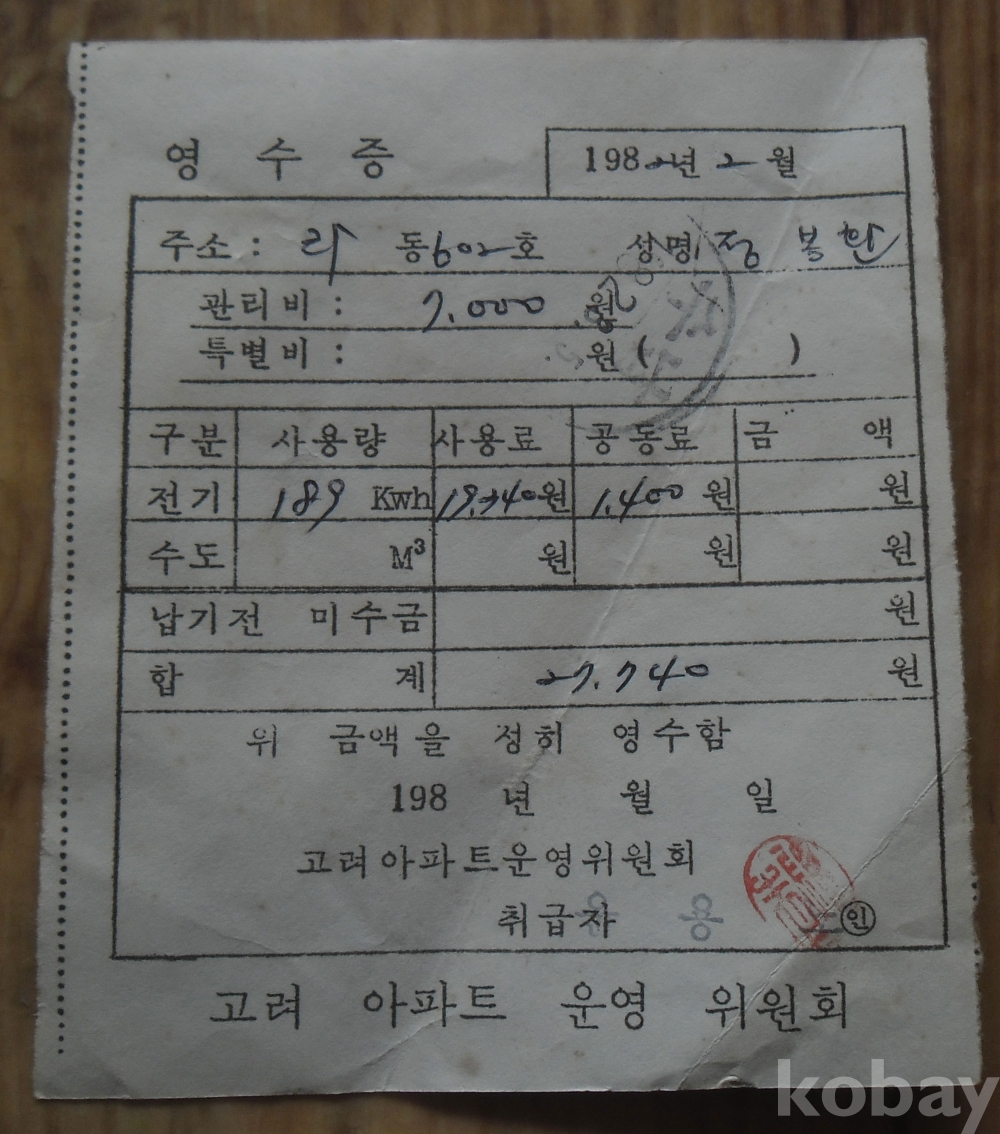 영 수 증
1982년 2월
주소: 라 동602호 성명 정 봉 한
관리비: 7.000 원
특별비: 원( )
구분 사용량 사용료 공동료 금 액
전기 189 Kwh 19.340원 1.400원 원
수도 M³ 원 원 원
납기전 미수금 원
합 계 27.740 원
위 금액을 정히 영수함
198 년 월 일
고려아파트운영위원회
취급자 용 인
고려 아파트 운영 위원회
kobay